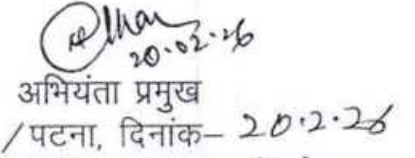 20.02.26
अभियंता प्रमुख
/पटना, दिनांक– 20.2.26